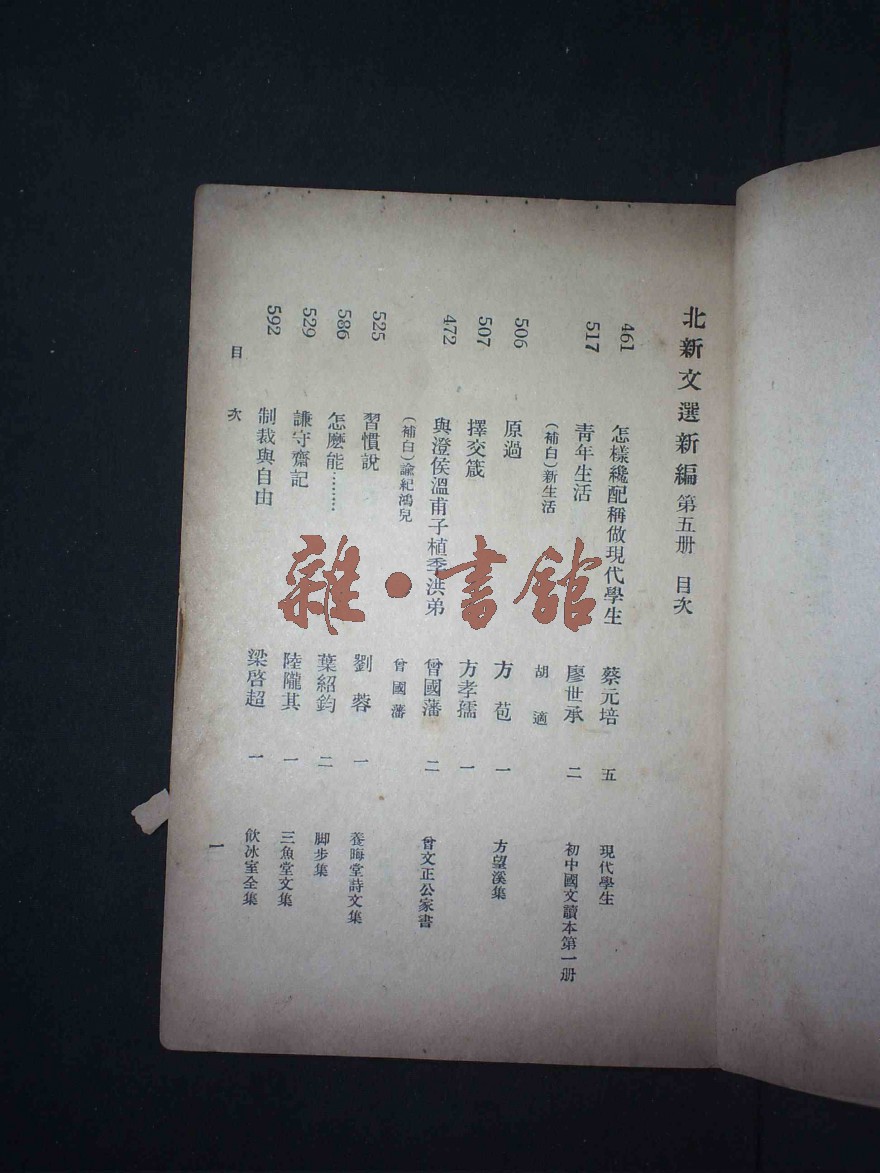 北新文選新編 第五册 目次
461 怎樣纔配稱做現代學生 蔡元培 五 現代學生
517 青年生活 廖世承 二 初中國文讀本第一册
(補白)新生活 胡適
506 原過 方苞 一 方望溪集
507 擇交箴 方孝孺 一
472 與澄侯溫甫子植季洪弟 曾國藩 二 曾文正公家書
(補白)諭紀鴻兒 曾國藩
525 習慣說 劉蓉 一 養晦堂詩文集
586 怎麽能……… 葉紹鈞 二 脚步集
529 謙守齋記 陸隴其 一 三魚堂文集
592 制裁與自由 梁啓超 一 飲冰室全集
目次 一
雜·書館